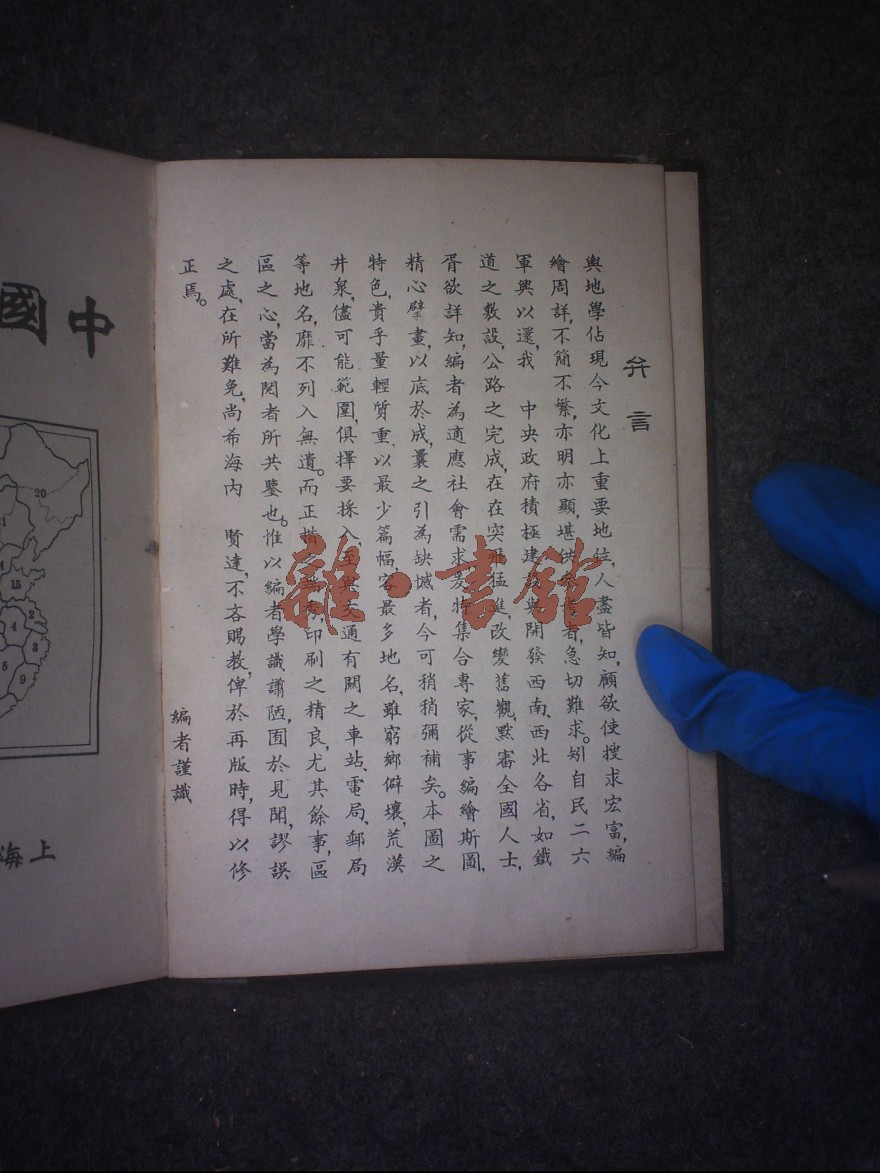 弁言
輿地學佔現今文化上重要地位,人盡皆知,顧欲使搜求宏富,編
繪周詳,不簡不繁,亦明亦顯,堪供參考者,急切難求。矧自民二六
軍興以還,我 中央政府積極建設與開發西南、西北各省,如鐵
道之敷設,公路之完成,在在突飛猛進,改變舊觀,默審全國人士,
胥欲詳知,編者為適應社會需求,爰特集合專家,從事編繪斯圖,
精心擘畫,以底於成,曩之引為缺憾者,今可稍稍彌補矣。本圖之
特色,貴乎量輕質重,以最少篇幅,容最多地名,雖窮鄉僻壤,荒漠
井泉,儘可能範圍,俱擇要採入,至與交通有關之車站、電局、郵局
等地名,靡不列入無遺。而正楷之,印刷之精良,尤其餘事,區
區之心,當為閱者所共鑒也。惟以編者學識譾陋,囿於見聞,謬誤
之處,在所難免,尚希海內 賢達,不吝賜教,俾於再版時,得以修
正焉。
編者謹識
中國
上海
20
21
15
14
2
4
3
5
9
雜·書館